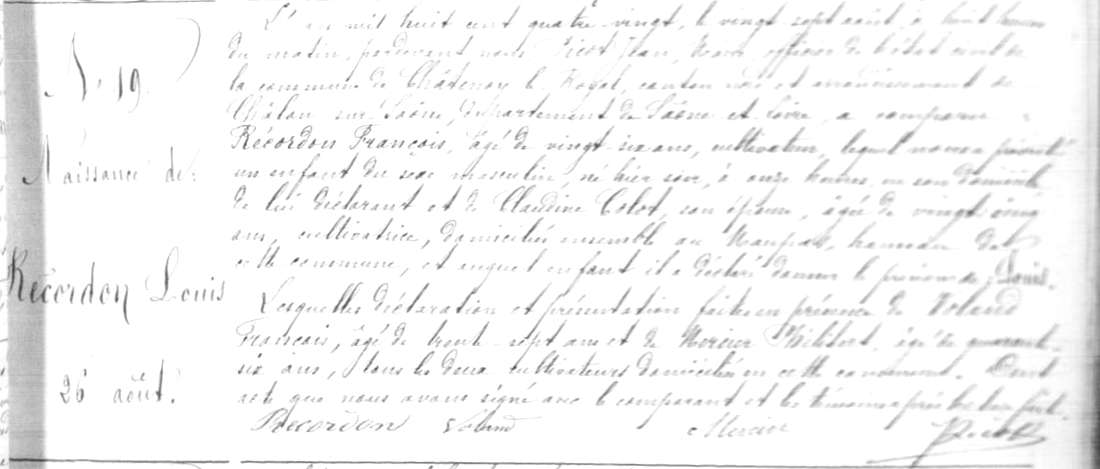 N° 19
Naissance de:
Recordon Louis
26 août.
L'an mil huit cent quatre-vingt, le vingt sept août, à huit heures
du matin, pardevant nous Picot Jean, Maire, officier de l'état civil de
la commune de Châtenoy le Royal, canton nord et arrondissement de
Châlon sur Saône, département de Saône et Loire, a comparu
Récordon François, âgé de vingt-six ans, cultivateur, lequel nous a présenté
un enfant du sexe masculin, né hier soir, à onze heures, en son domicile
de lui déclarant et de Claudine Colot, son épouse, âgée de vingt cinq
ans, cultivatrice, domiciliés ensemble au hameau de
cette commune, et auquel enfant il a déclaré donner le prénom de: Louis.
Lesquelles déclaration et présentation faites en présence de Voland
François, âgé de trente-sept ans et de Mercier Philibert, âgé de quarante-
six ans, tous les deux cultivateurs domiciliés en cette commune. Dont
acte que nous avons signé avec le comparant et les témoins après lecture faite.
Recordon Voland Mercier Picot